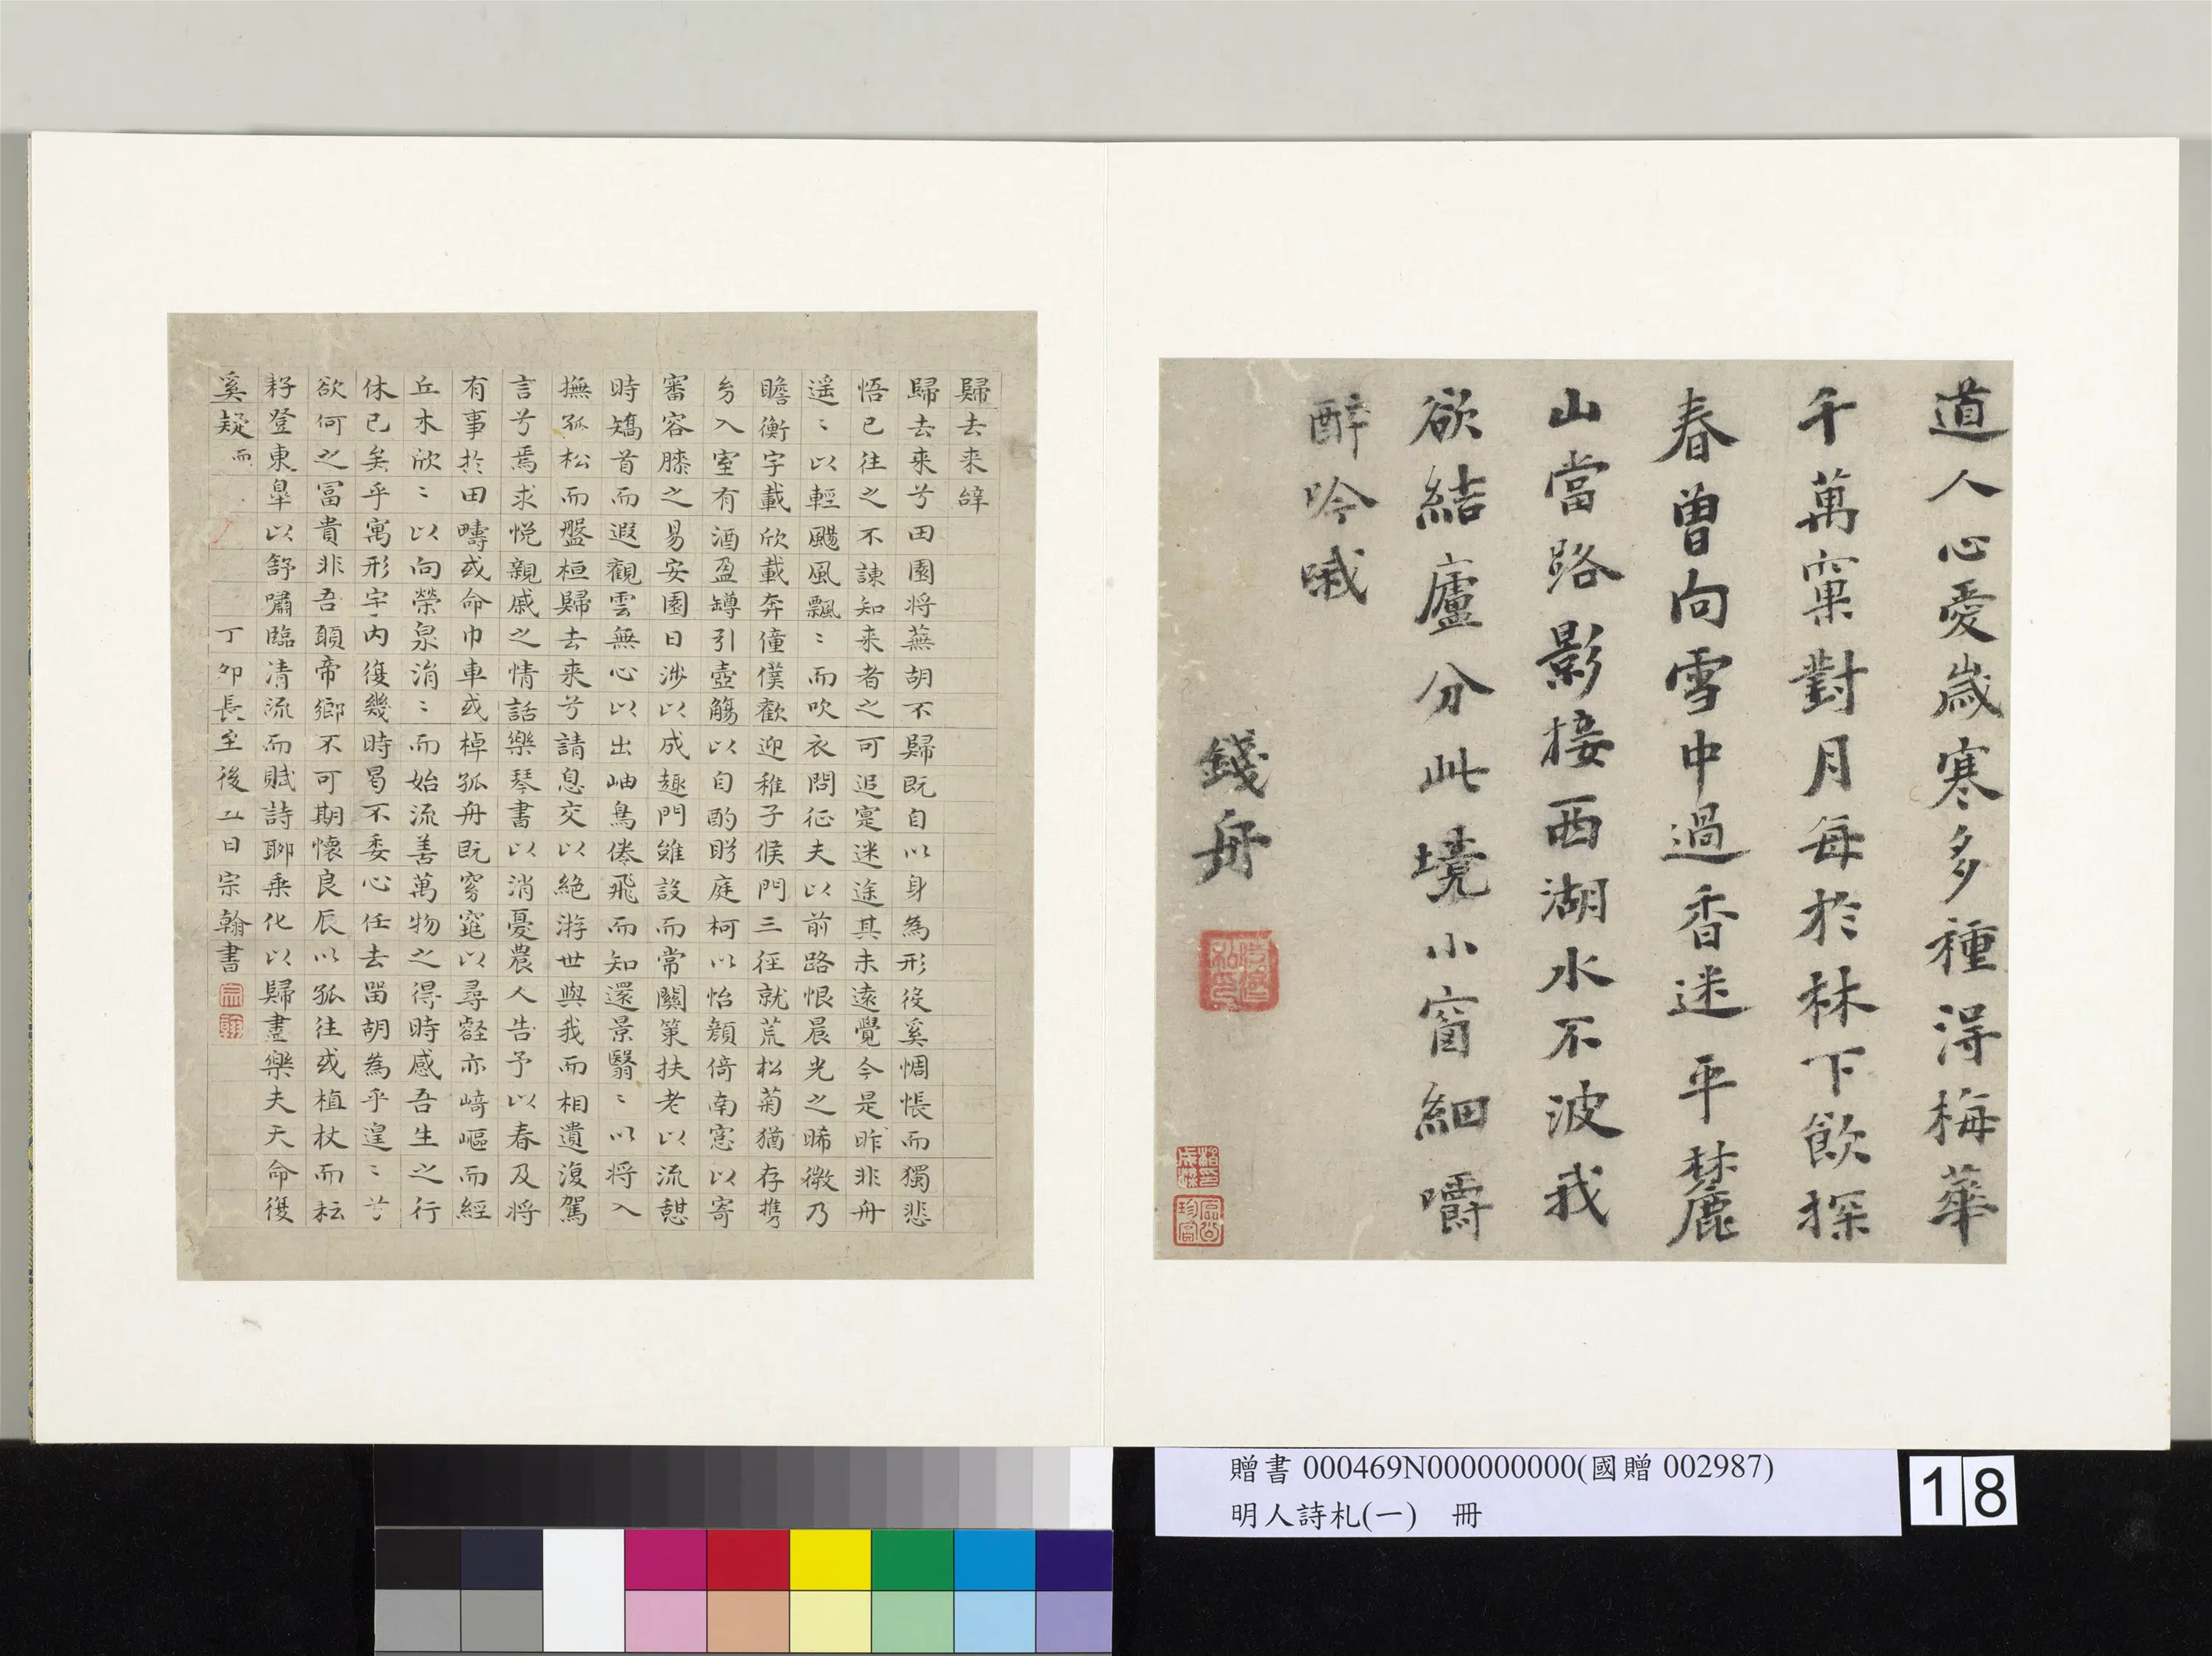 道人心愛歲寒多種得梅華
千萬窠對月每於林下飲探
春曾向雪中過香迷平麓
山當路影接西湖水不波我
欲結廬分此境小窗細嚼
醉吟哦
錢舟
歸去来辝
歸去来兮田園将蕪胡不歸既自以身為形役奚惆悵而獨悲
悟已往之不諫知来者之可追寔迷途其未遠覺今是昨非舟
遥〻以輕颺風飄〻而吹衣問征夫以前路恨晨光之晞微乃
瞻衡宇載欣載奔僮僕歡迎稚子候門三徑就荒松菊猶存携
㓜入室有酒盈罇引壺觴以自酌眄庭柯以怡顔倚南窓以寄
審容膝之易安園日涉以成趣門雖設而常關策扶老以流憇
時矯首而遐觀雲無心以出岫鳥倦飛而知還景翳〻以将入
撫孤松而盤桓歸去来兮請息交以絶游世與我而相遺復駕
言兮焉求悦親戚之情話樂琴書以消憂農人告予以春及将
有事於田疇或命巾車或棹孤舟既窈窕以尋壑亦﨑嶇而經
丘木欣〻以向榮泉涓〻而始流善萬物之得時感吾生之行
休已矣乎寓形宇内復幾時曷不委心任去留胡為乎遑〻兮
欲何之冨貴非吾願帝鄉不可期懷良辰以孤往或植杖而耘
耔登東皐以舒嘯臨清流而賦詩聊乗化以歸盡樂夫天命復
奚疑 而 丁卯長至後五日宗翰書
宗
翰
贈書 000469N000000000(國贈 002987)
明人詩札(一) 冊
18